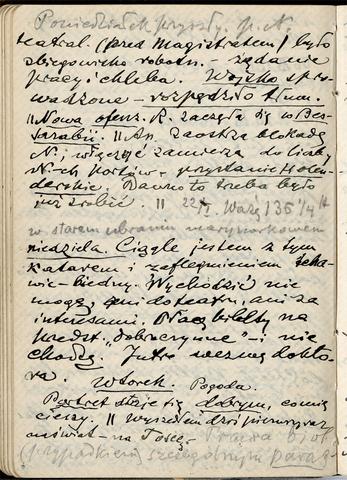 Poniedziałek przyszły. p. N
teatral. (przed Magistratem) było
zbiegowisko robotn. - żądanie
pracy i chleba. Wojsko spro-
wadzone - rozpędziło tłum.
|| Nowa ofenz. R. zaczęła się w Bes-
sarabii. || An. zaostrza blokadę
N; włączyć zamierza do liczby
N-ch portów - przystanie Holen-
derskie. Dawno to trzeba było
już zrobić. || 22/I. Ważę 136 1/4 ft
w starem ubraniu marynarkowem
niedziela. Ciągle jestem z tym
katarem i zaflegmieniem
wie - biedny. Wychodzić nie
mogę, ani do teatru, ani za
interesami. Płacę bilety na
przedst. „dobroczynne" - i nie
chodzę. Jutro wezmę dokto-
ra. Wtorek. Pogoda.
Portret zdaje się dobrym, co mię
cieszy. || Wyszedłem dziś pierwszy raz
na świat - na Toscę.
(przypadkiem szczególnym para